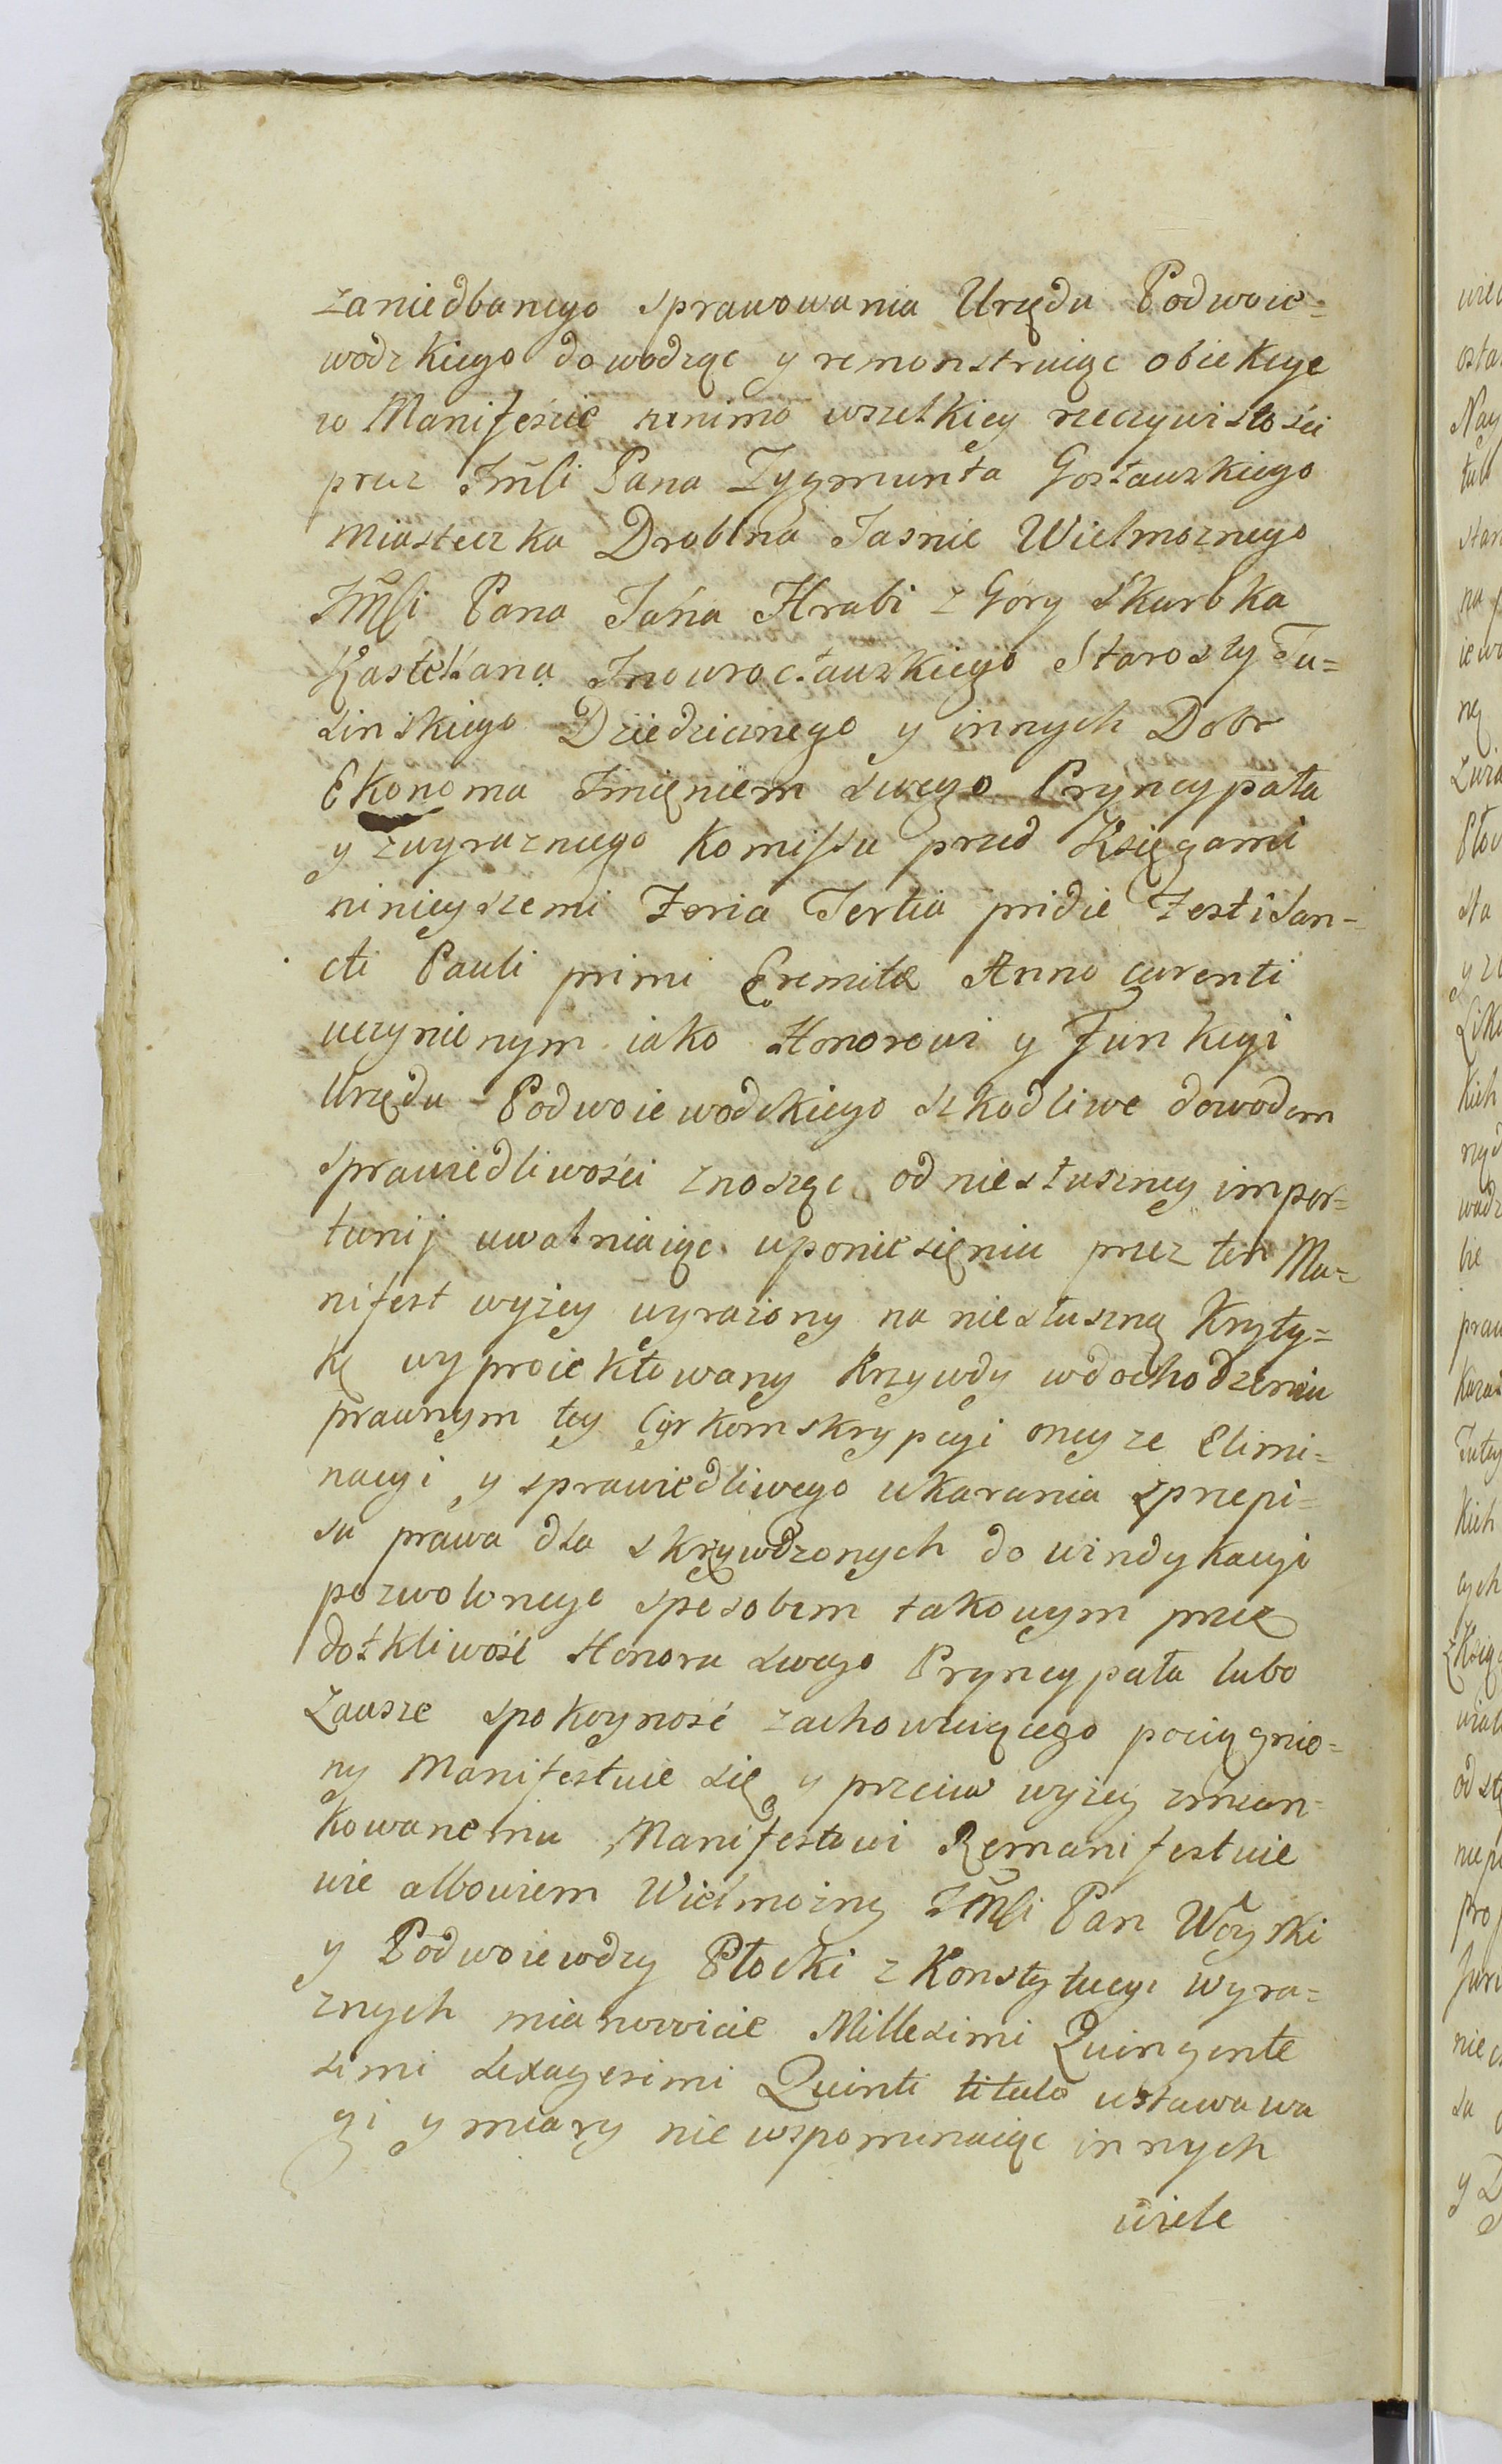 zaniedbanego sprawowania Urzędu Podwoie=
wodzkiego dowodząc y remonstruiąc obiekcye
w Manifeście mimo wszelkiey rzeczywistości
przez Jmści Pana Zygmunta Gosławskiego
Miasteczka Drobina Jasnie Wielmoznego
Jmści Pana Jana Hrabi z Góry Skarbka
Kasztellana Inowrocławskiego Starosty Tu=
linskiego Dziedzicznego y innych Dobr
Ekonoma Imięniem swego Pryncypała
y zwyraznego Komissu przed Xsięgami
ninieyszemi Feria Tertia pridie Festi San-
cti Pauli primi Eremitæ Anno curenti
uczynionym iako Honorowi y Funkcyi
Urzędu Podwoiewodzkiego szkodliwe dowodem
Sprawiedliwości znosząc od niesłuszney impor=
tunij uwalniaiąc uponiesięniu przez ten Ma=
nifest wyżey wyrażony na niesłuszną Kryty=
kę wyproiektowany Krzywdy wdochodzeniu
prawnym tey Cyrkomskrypcyi oney ze Elimi=
nacyi y sprawiedliwego ukarania zprzepi=
su prawa dla skrzywdzonych do windykacyi
pozwolonego sposobem takowym przez
dotkliwość Honoru swego Pryncypała lubo
Zawsze spokoyność zachowuiącego pociągnio=
ny Manifestuie się y przeciw wyżey zmian=
kowanemu Manifestowi Remanifestuie
wie albowiem Wielmożny Jmści Pan Woyski
y Podwoiewodzy Płocki z Konstytucyi wyra=
znych mianowicie Millesimi Quingente
simi Sexagesimi Quinti titulo ustawa wa
gi y miary nie wspominaiąc innych
wiele